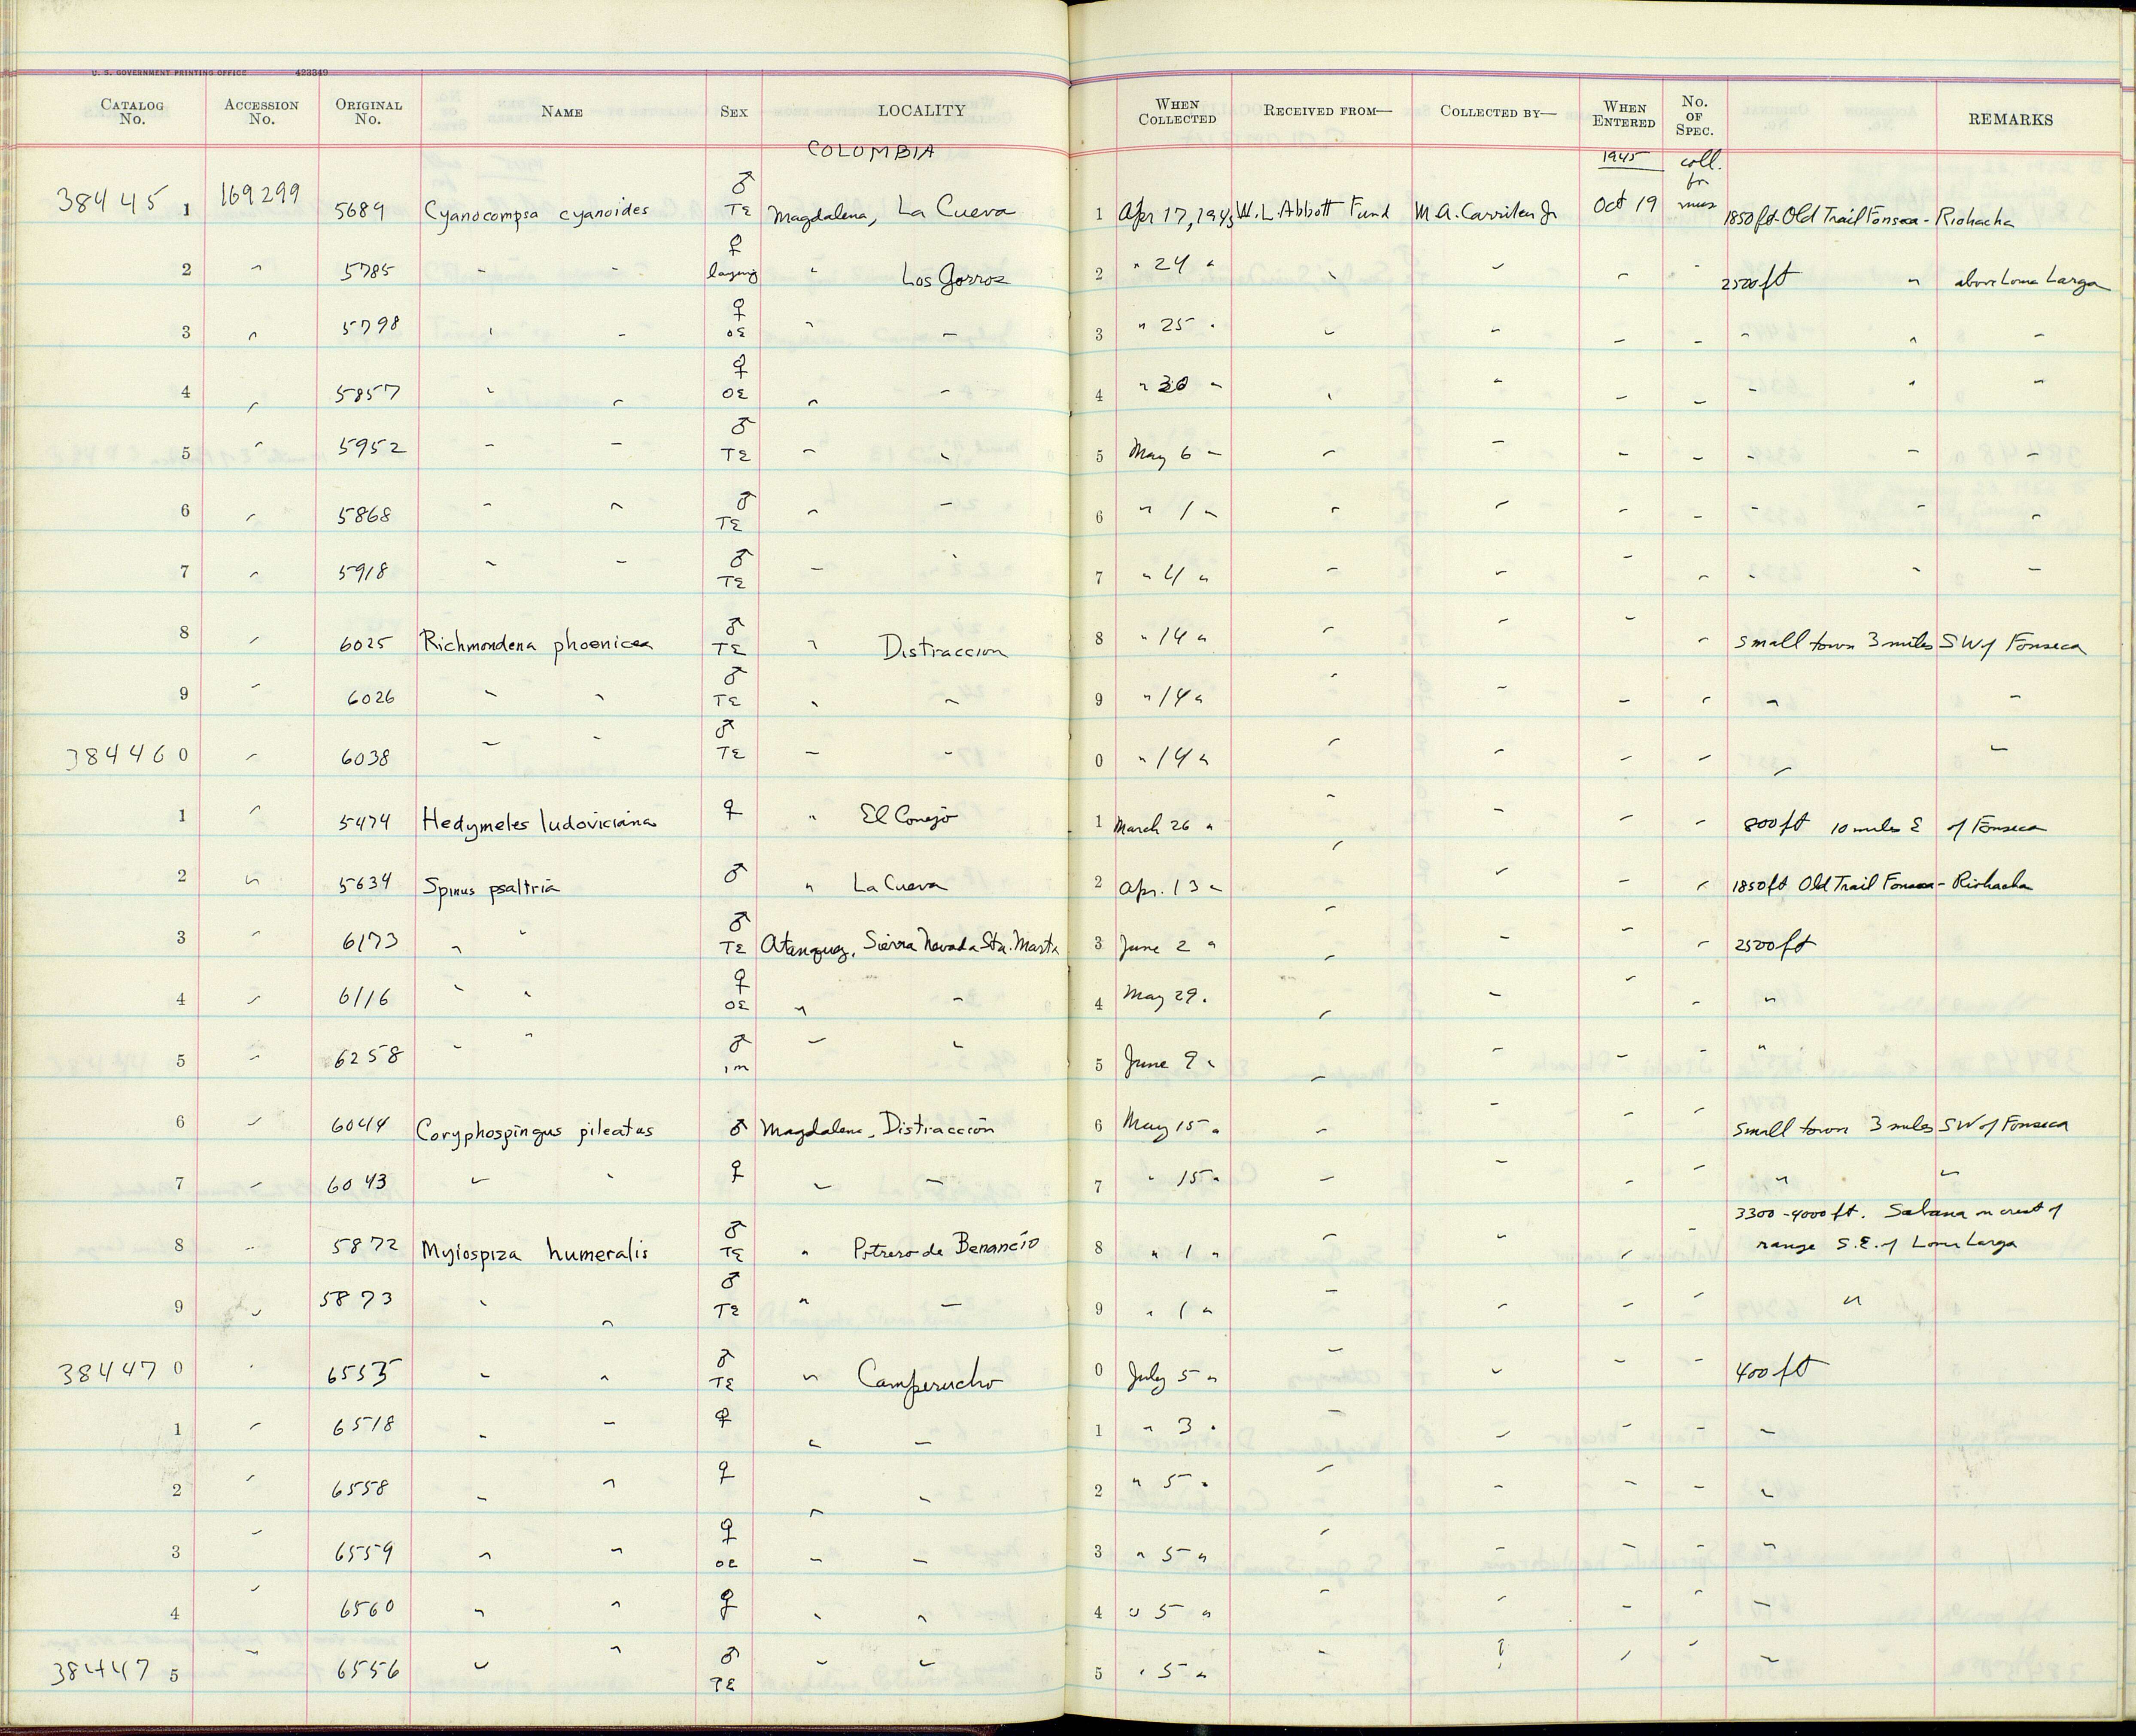 U. S. GOVERNMENT PRINTING OFFICE 423349
CATALOG No. ACCESSION No. ORIGINAL No. NAME SEX LOCALITY WHEN COLLECTED RECEIVED FROM— COLLECTED BY— WHEN ENTERED No. OF SPEC. REMARKS
COLOMBIA 1945 coll. for mus
38445 1 169299 5689 Cyanocompsa cyanoides ♂ TE Magdalena, La Cueva 1 Apr 17, 1945 W. L. Abbott Fund M. A. Carriker Jr Oct 19 1850 ft - Old Trail Fonseca - Riohacha
2 " 5785 " " ♀ laying " Los Gorros 2 " 24 " " " " " 2500 ft " above Loma Larga
3 " 5798 " " ♀ OE " " 3 " 25 " " " " " " " "
4 " 5857 " " ♀ OE " " 4 " 30 " " " " " " " "
5 " 5952 " " ♂ TE " " 5 May 6 " " " " " " " "
6 " 5868 " " ♂ TE " " 6 " 1 " " " " " " " "
7 " 5918 " " ♂ TE " " 7 " 4 " " " " " " " "
8 " 6025 Richmondena phoenicea ♂ TE " Distraccion 8 " 14 " " " " " Small town 3 miles SW of Fonseca
9 " 6026 " " ♂ TE " " 9 " 14 " " " " " " "
384460 " 6038 " " ♂ TE " " 0 " 14 " " " " " " "
1 " 5474 Hedymeles ludoviciana ♀ " El Conejo 1 March 26 " " " " " 800 ft 10 miles E of Fonseca
2 " 5634 Spinus psaltria ♂ " La Cueva 2 Apr. 13 " " " " " 1850 ft Old Trail Fonseca - Riohacha
3 " 6173 " " ♂ TE Atanquez, Sierra Nevada Sta. Marta 3 June 2 " " " " " 2500 ft
4 " 6116 " " ♀ OE " " 4 May 29 " " " " " "
5 " 6258 " " ♂ im " " 5 June 9 " " " " " "
6 " 6044 Coryphospingus pileatus ♂ Magdalena, Distracción 6 May 15 " " " " " Small town 3 miles SW of Fonseca
7 " 6043 " " ♀ " " 7 " 15 " " " " " " "
3300 - 4000 ft. Sabana on crest of
8 " 5872 Myiospiza humeralis ♂ TE " Potrero de Benancio 8 " 1 " " " " " range S.E. of Loma Larga
9 " 5873 " " ♂ TE " " 9 " 1 " " " " " "
384470 " 6553 " " ♂ TE " Camperucho 0 July 5 " " " " " 400 ft
1 " 6518 " " ♀ " " 1 " 3 " " " " " "
2 " 6558 " " ♀ " " 2 " 5 " " " " " "
3 " 6559 " " ♀ OE " " 3 " 5 " " " " " "
4 " 6560 " " ♀ " " 4 " 5 " " " " " "
384475 " 6556 " " ♂ TE " " 5 " 5 " " " " " "